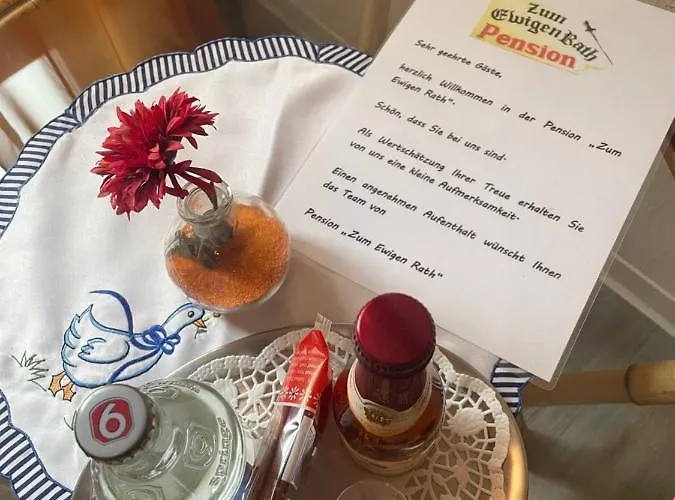 Zum
Ewigen Rath
Pension
Sehr geehrte Gäste,
herzlich Willkommen in der Pension „Zum
Ewigen Rath".
Schön, dass Sie bei uns sind.
Als Wertschätzung Ihrer Treue erhalten Sie
von uns eine kleine Aufmerksamkeit.
Einen angenehmen Aufenthalt wünscht Ihnen
das Team von
Pension „Zum Ewigen Rath"
6